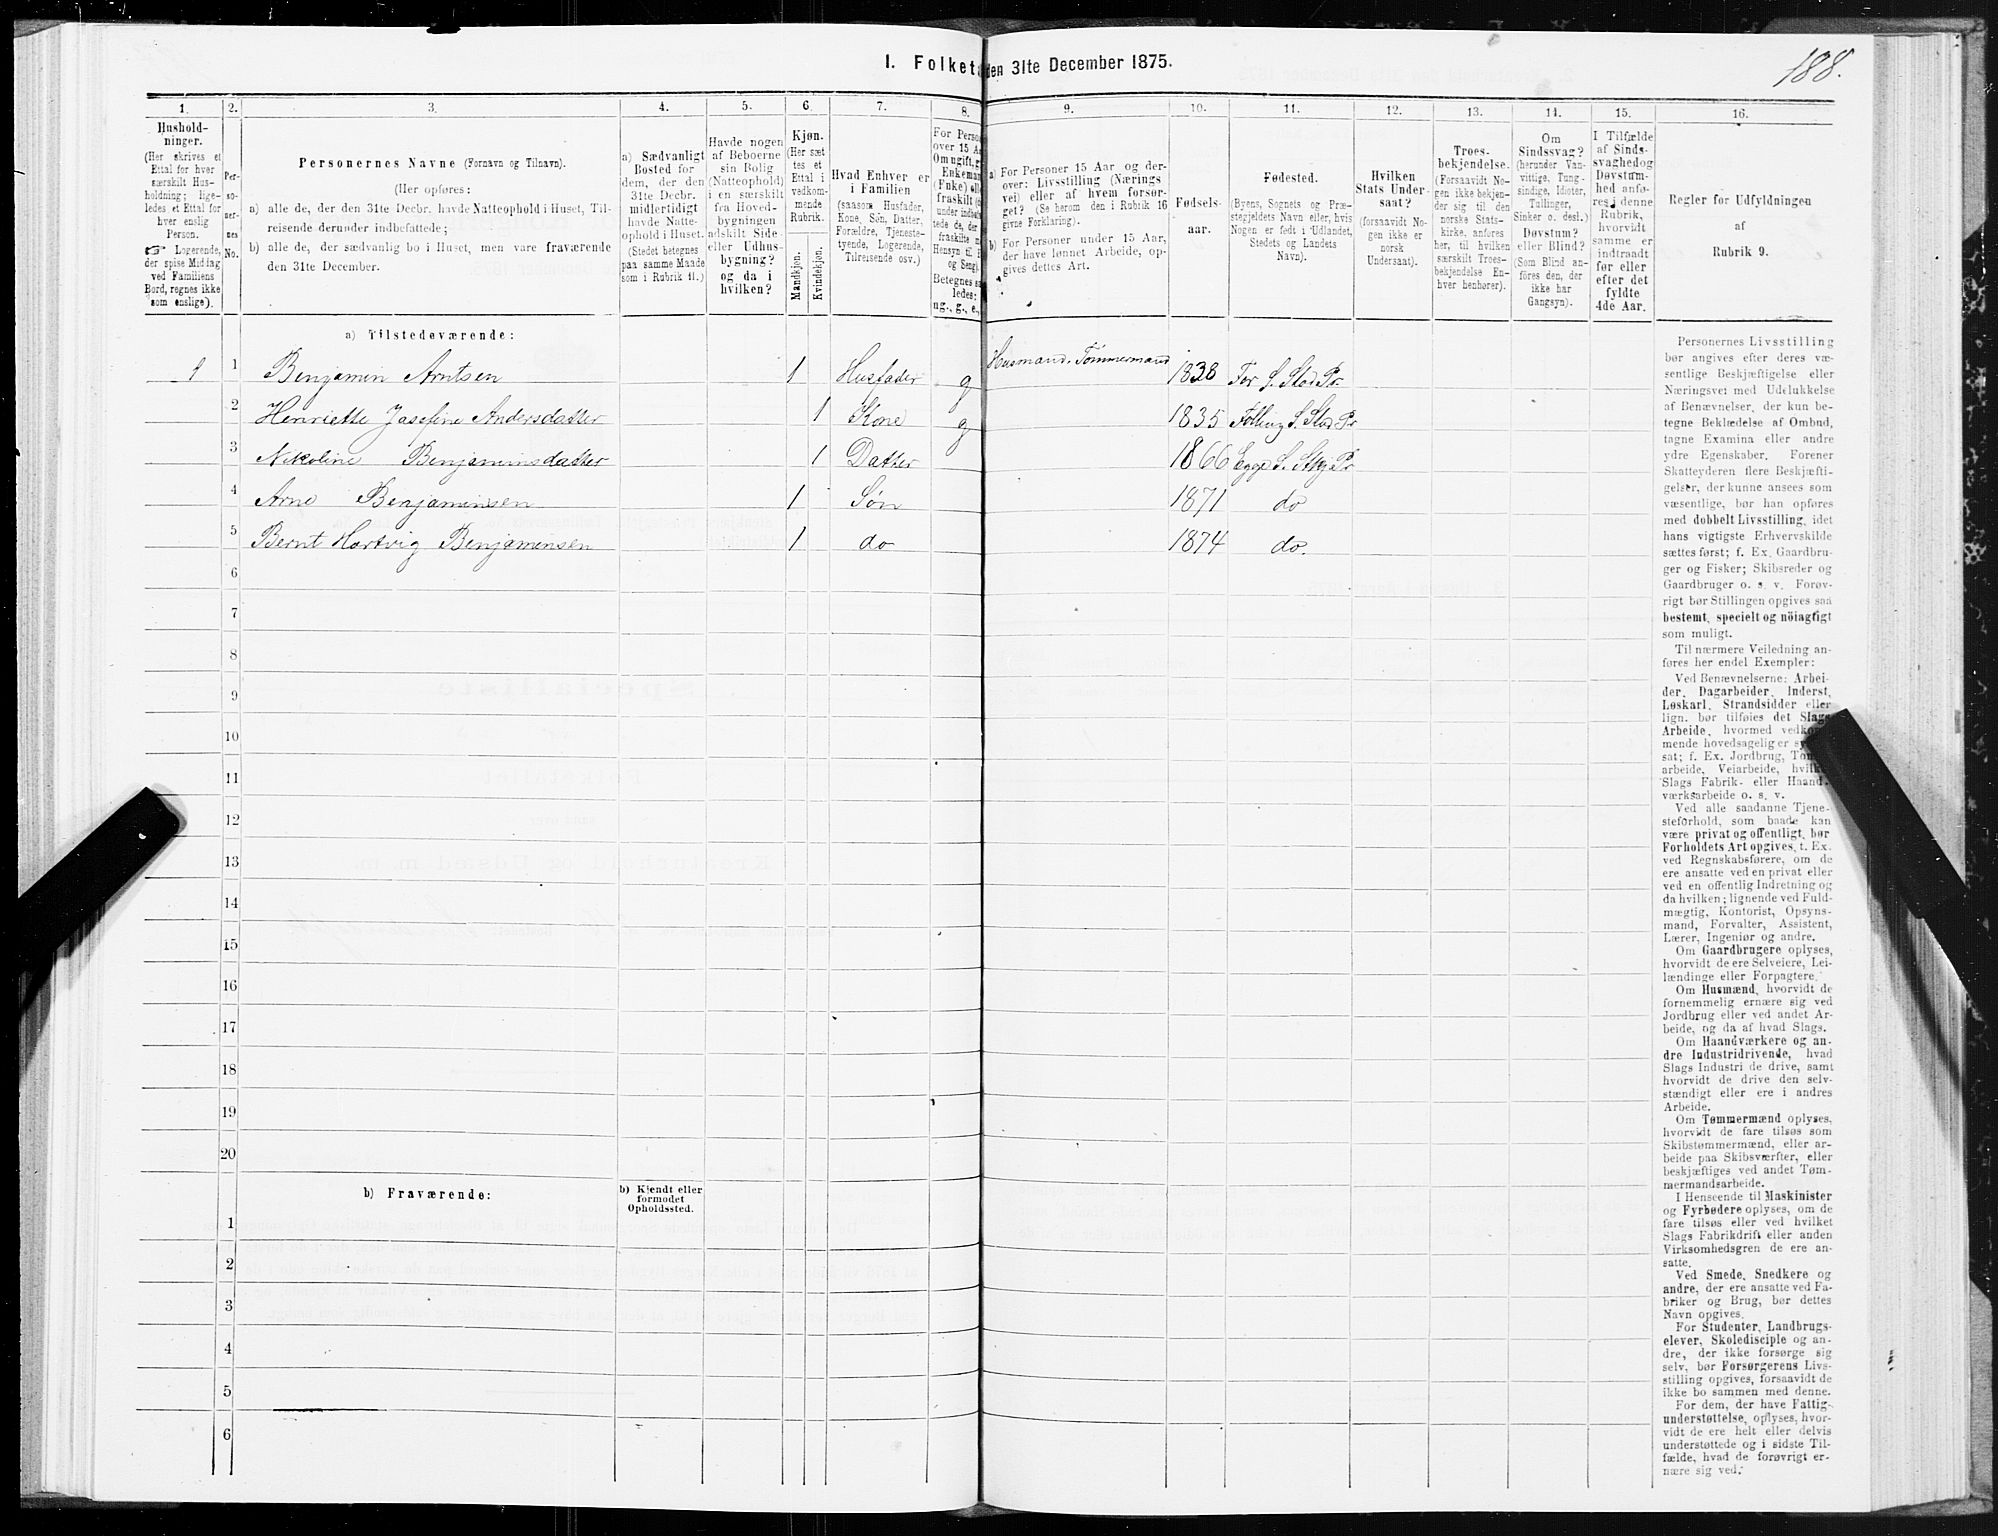 I. Folket den 31te December 1875.
188.
1. 2. 3. 4. 5. 6. 7. 8. 9. 10. 11. 12. 13. 14. 15. 16.
Hushold-
ninger.
(Her skrives et
Ettal for hver
særskilt Hus-
holdning; lige-
ledes et Ettal for
hver enslig
Person.
☞ Logerende,
der spise Middag
ved Familiens
Bord, regnes ikke
som enslige).
Per-
so-
ner-
nes
No.
Personernes Navne (Fornavn og Tilnavn).
(Her opføres:
a) alle de, der den 31te Decbr. havde Natteophold i Huset, Til-
reisende derunder indbefattede;
b) alle de, der sædvanlig bo i Huset, men vare fraværende
den 31te December.
a) Sædvanligt
Bosted for
dem, der den
31te Decbr.
midlertidigt
havde Natte-
ophold i Huset.
(Stedet betegnes
paa samme Maade
som i Rubrik 11.)
Havde nogen
af Beboerne
sin Bolig
(Natteophold)
i en særskilt
fra Hoved-
bygningen
adskilt Side-
eller Udhus-
bygning?
og da i
hvilken?
Kjøn.
(Her sæt
tes et
Ettal i
vedkom-
mende
Rubrik.
Mandkjøn.
Kvindekjøn.
Hvad Enhver er
i Familien
(saasom Husfader,
Kone, Søn, Datter,
Forældre, Tjeneste-
tyende, Logerende,
Tilreisende osv.).
For Perso
over 15 Aa
Om ugift, g
Enkeman
(Fnke) ell
fraskilt (s
under indbe
tede de, der
fraskilte m
Hensyn til
og Seng).
Betegnes sa
ledes:
ug., g., e.,
a) For Personer 15 Aar og der-
over: Livsstilling (Nærings
vei) eller af hvem forsør-
get? (Se herom den i Rubrik 16
givne Forklaring).
b) For Personer under 15 Aar,
der have lønnet Arbeide, op-
gives dettes Art.
Fødsels-
aar.
Fødested.
(Byens, Sognets og Præ-
stegjeldets Navn eller, hvis
Nogen er født i Udlandet,
Stedets og Landets
Navn).
Hvilken
Stats Under-
saat?
(forsaavidt No-
gen ikke er
norsk
Undersaat).
Troes-
bekjendelse.
(Forsaavidt No-
gen ikke bekjen-
der sig til den
norske Stats-
kirke, anføres
her, til hvilken
særskilt Troes-
bekjendelse En-
hver henhører).
Om
Sindssvag?
(herunder Van-
vittige, Tung-
sindige, Idioter,
Tullinger,
Sinker o. desl.)
Døvstum?
eller Blind?
(Som Blind an-
føres den, der
ikke har
Gangsyn).
I Tilfælde
af Sinds-
svaghed og
Døvstum-
hed anfø-
res i denne
Rubrik,
hvorvidt
samme er
indtraadt
før eller
efter det
fyldte
4de Aar.
Regler for Udfyldningen
af
Rubrik 9.
a) Tilstedeværende:
1 1 Benjamin Arntsen 1 Husfader g Husmand, Tømmermand 1838 For S. Stod Pr
2 Henriette Josefine Andersdatter 1 Kone g 1835 Følling S. Stod Pr
3 Nikoline Benjaminsdatter 1 Datter 1866 Egge S. Stkj Pr
4 Arne Benjaminsen 1 Søn 1871 do
5 Bernt Hartvig Benjaminsen 1 do 1874 do.
6
7
8
9
10
11
12
13
14
15
16
17
18
19
20
b) Fraværende:
b) Kjendt eller
formodet
Opholdssted.
1
2
3
4
5
6
Personernes Livsstilling
bør angives efter deres væ-
sentlige Beskjæftigelse eller
Næringsvei med Udelukkelse
af Benævnelser, der kun be-
tegne Beklædelse af Ombud,
tagne Examina eller andre
ydre Egenskaber. Forener
Skatteyderen flere Beskjæfti-
gelser, der kunne ansees som
væsentlige, bør han opføres
med dobbelt Livsstilling, idet
hans vigtigste Erhvervskilde
sættes først; f. Ex. Gaardbru-
ger og Fisker; Skibsreder og
Gaardbruger o. s. v. Forøv-
rigt bør Stillingen opgives saa
bestemt, specielt og nöiagtigt
som muligt.
Til nærmere Veiledning an-
føres her endel Exempler:
Ved Benævnelserne: Arbei-
der, Dagarbeider, Inderst,
Løskarl, Strandsidder eller
lign. bør tilføies det Slags
Arbeide, hvormed vedkom-
mende hovedsagelig er sys
sat; f. Ex. Jordbrug, Tøm
arbeide, Veiarbeide, hvilke
Slags Fabrik- eller Haand-
værksarbeide o. s. v.
Ved alle saadanne Tjene-
steforhold, som baade kan
være privat og offentligt, bør
Forholdets Art opgives, t. Ex.
ved Regnskabsførere, om de
ere ansatte ved en privat eller
ved en offentlig Indretning og
da hvilken; lignende ved Fuld-
mægtig, Kontorist, Opsyns-
mand, Forvalter, Assistent,
Lærer, Ingeniør og andre.
Om Gaardbrugere oplyses,
hvorvidt de ere Selveiere, Lei-
lændinge eller Forpagtere.
Om Husmænd, hvorvidt de
fornemmelig ernære sig ved
Jordbrug eller ved andet Ar-
beide, og da af hvad Slags.
Om Haandværkere og an-
dre Industridrivende, hvad
Slags Industri de drive, samt
hvorvidt de drive den selv-
stændigt eller ere i andres
Arbeide.
Om Tømmermænd oplyses,
hvorvidt de fare tilsøs som
Skibstømmermænd, eller ar-
beide paa Skibsværfter, eller
beskjæftiges ved andet Tøm-
mermandsarbeide.
I Henseende til Maskinister
og Fyrbødere oplyses, om de
fare tilsøs eller ved hvilket
Slags Fabrikdrift eller anden
Virksomhedsgren de ere an-
satte.
Ved Smede, Snedkere og
andre, der ere ansatte ved Fa-
briker og Brug, bør dettes
Navn opgives.
For Studenter, Landbrugs-
elever, Skoledisciple og an-
dre, der ikke forsørge sig
selv, bør Forsørgerens Livs-
stilling opgives, forsaavidt de
ikke bo sammen med denne.
For dem, der have Fattig-
understøttelse, oplyses, hvor-
vidt de ere helt eller delvis
understøttede og i sidste Til-
fælde, hvad de forøvrigt er-
nære sig ved.